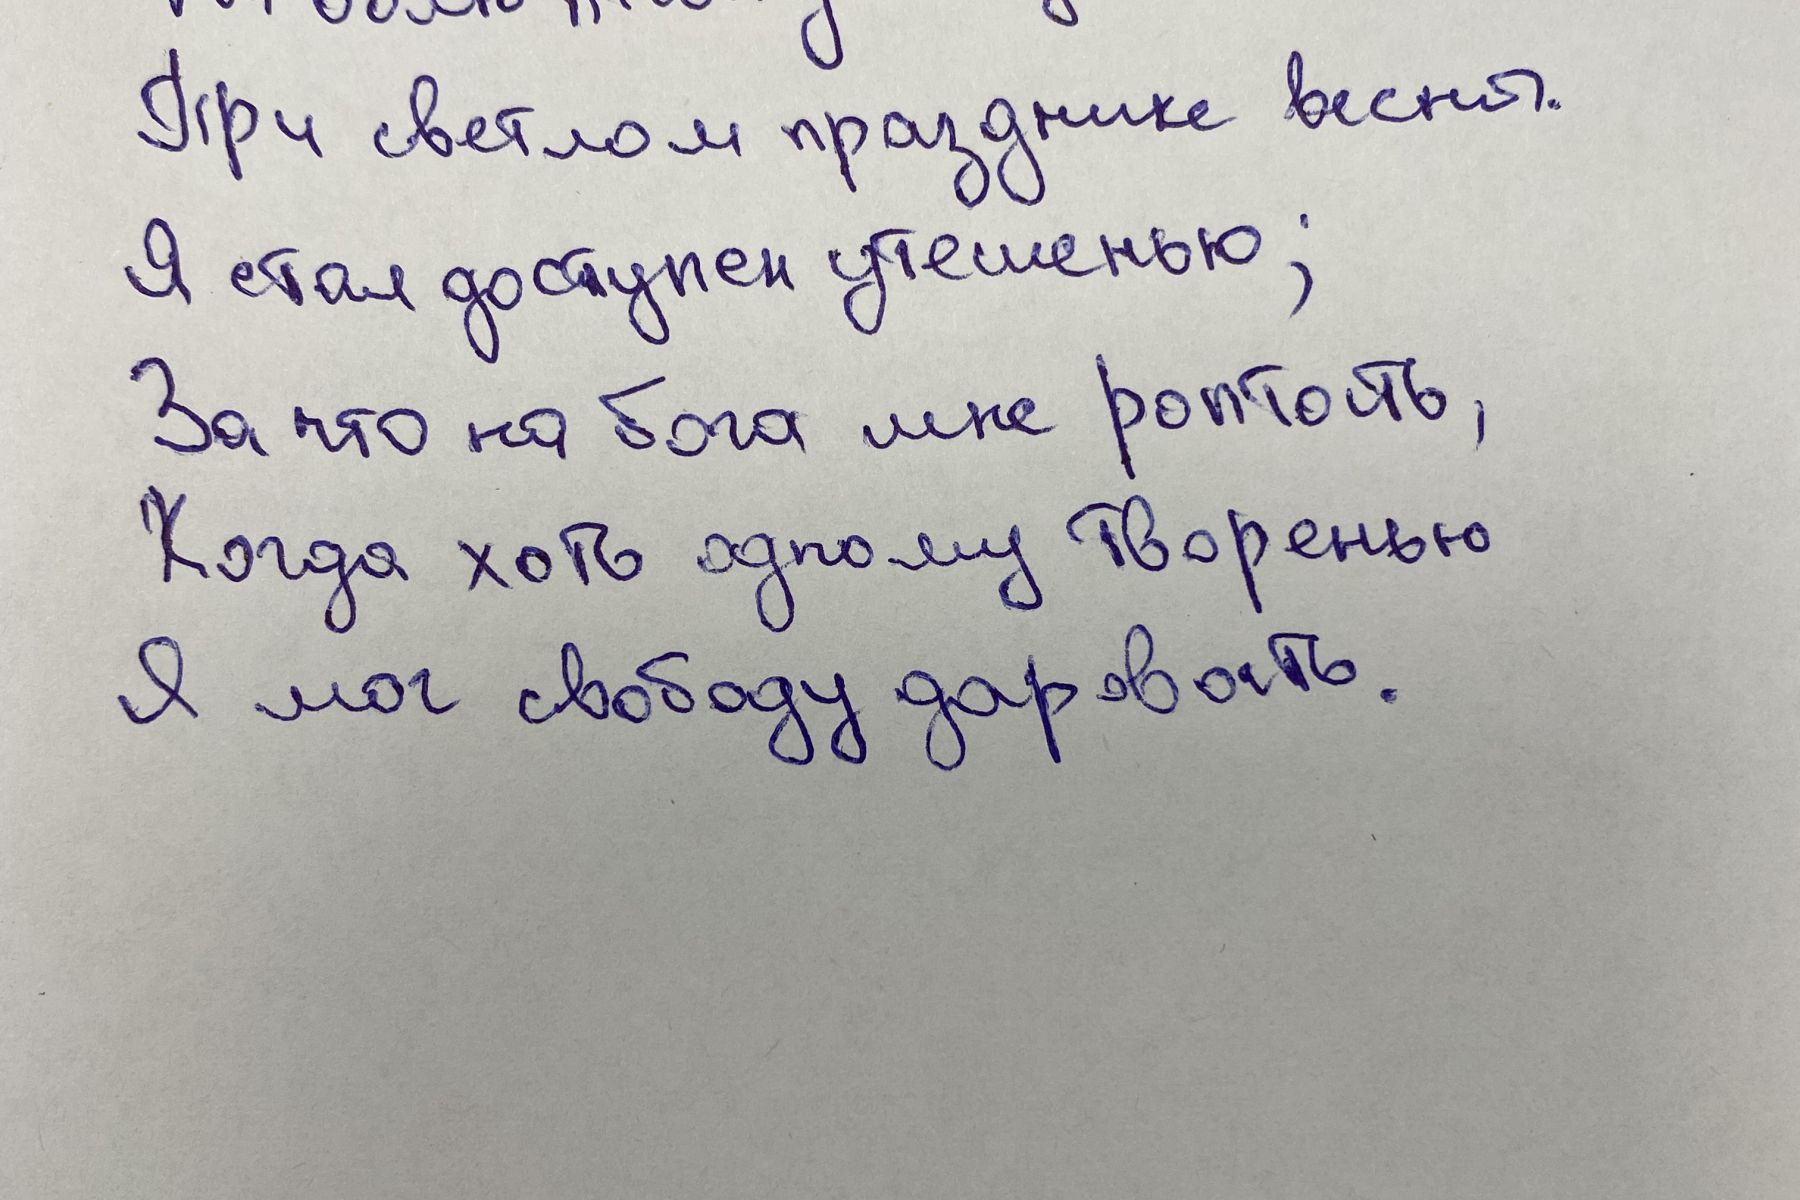 При светлом празднике весны.
Я стал доступен утешенью;
За что на бога мне роптать,
Когда хоть одному творенью
Я мог свободу даровать.